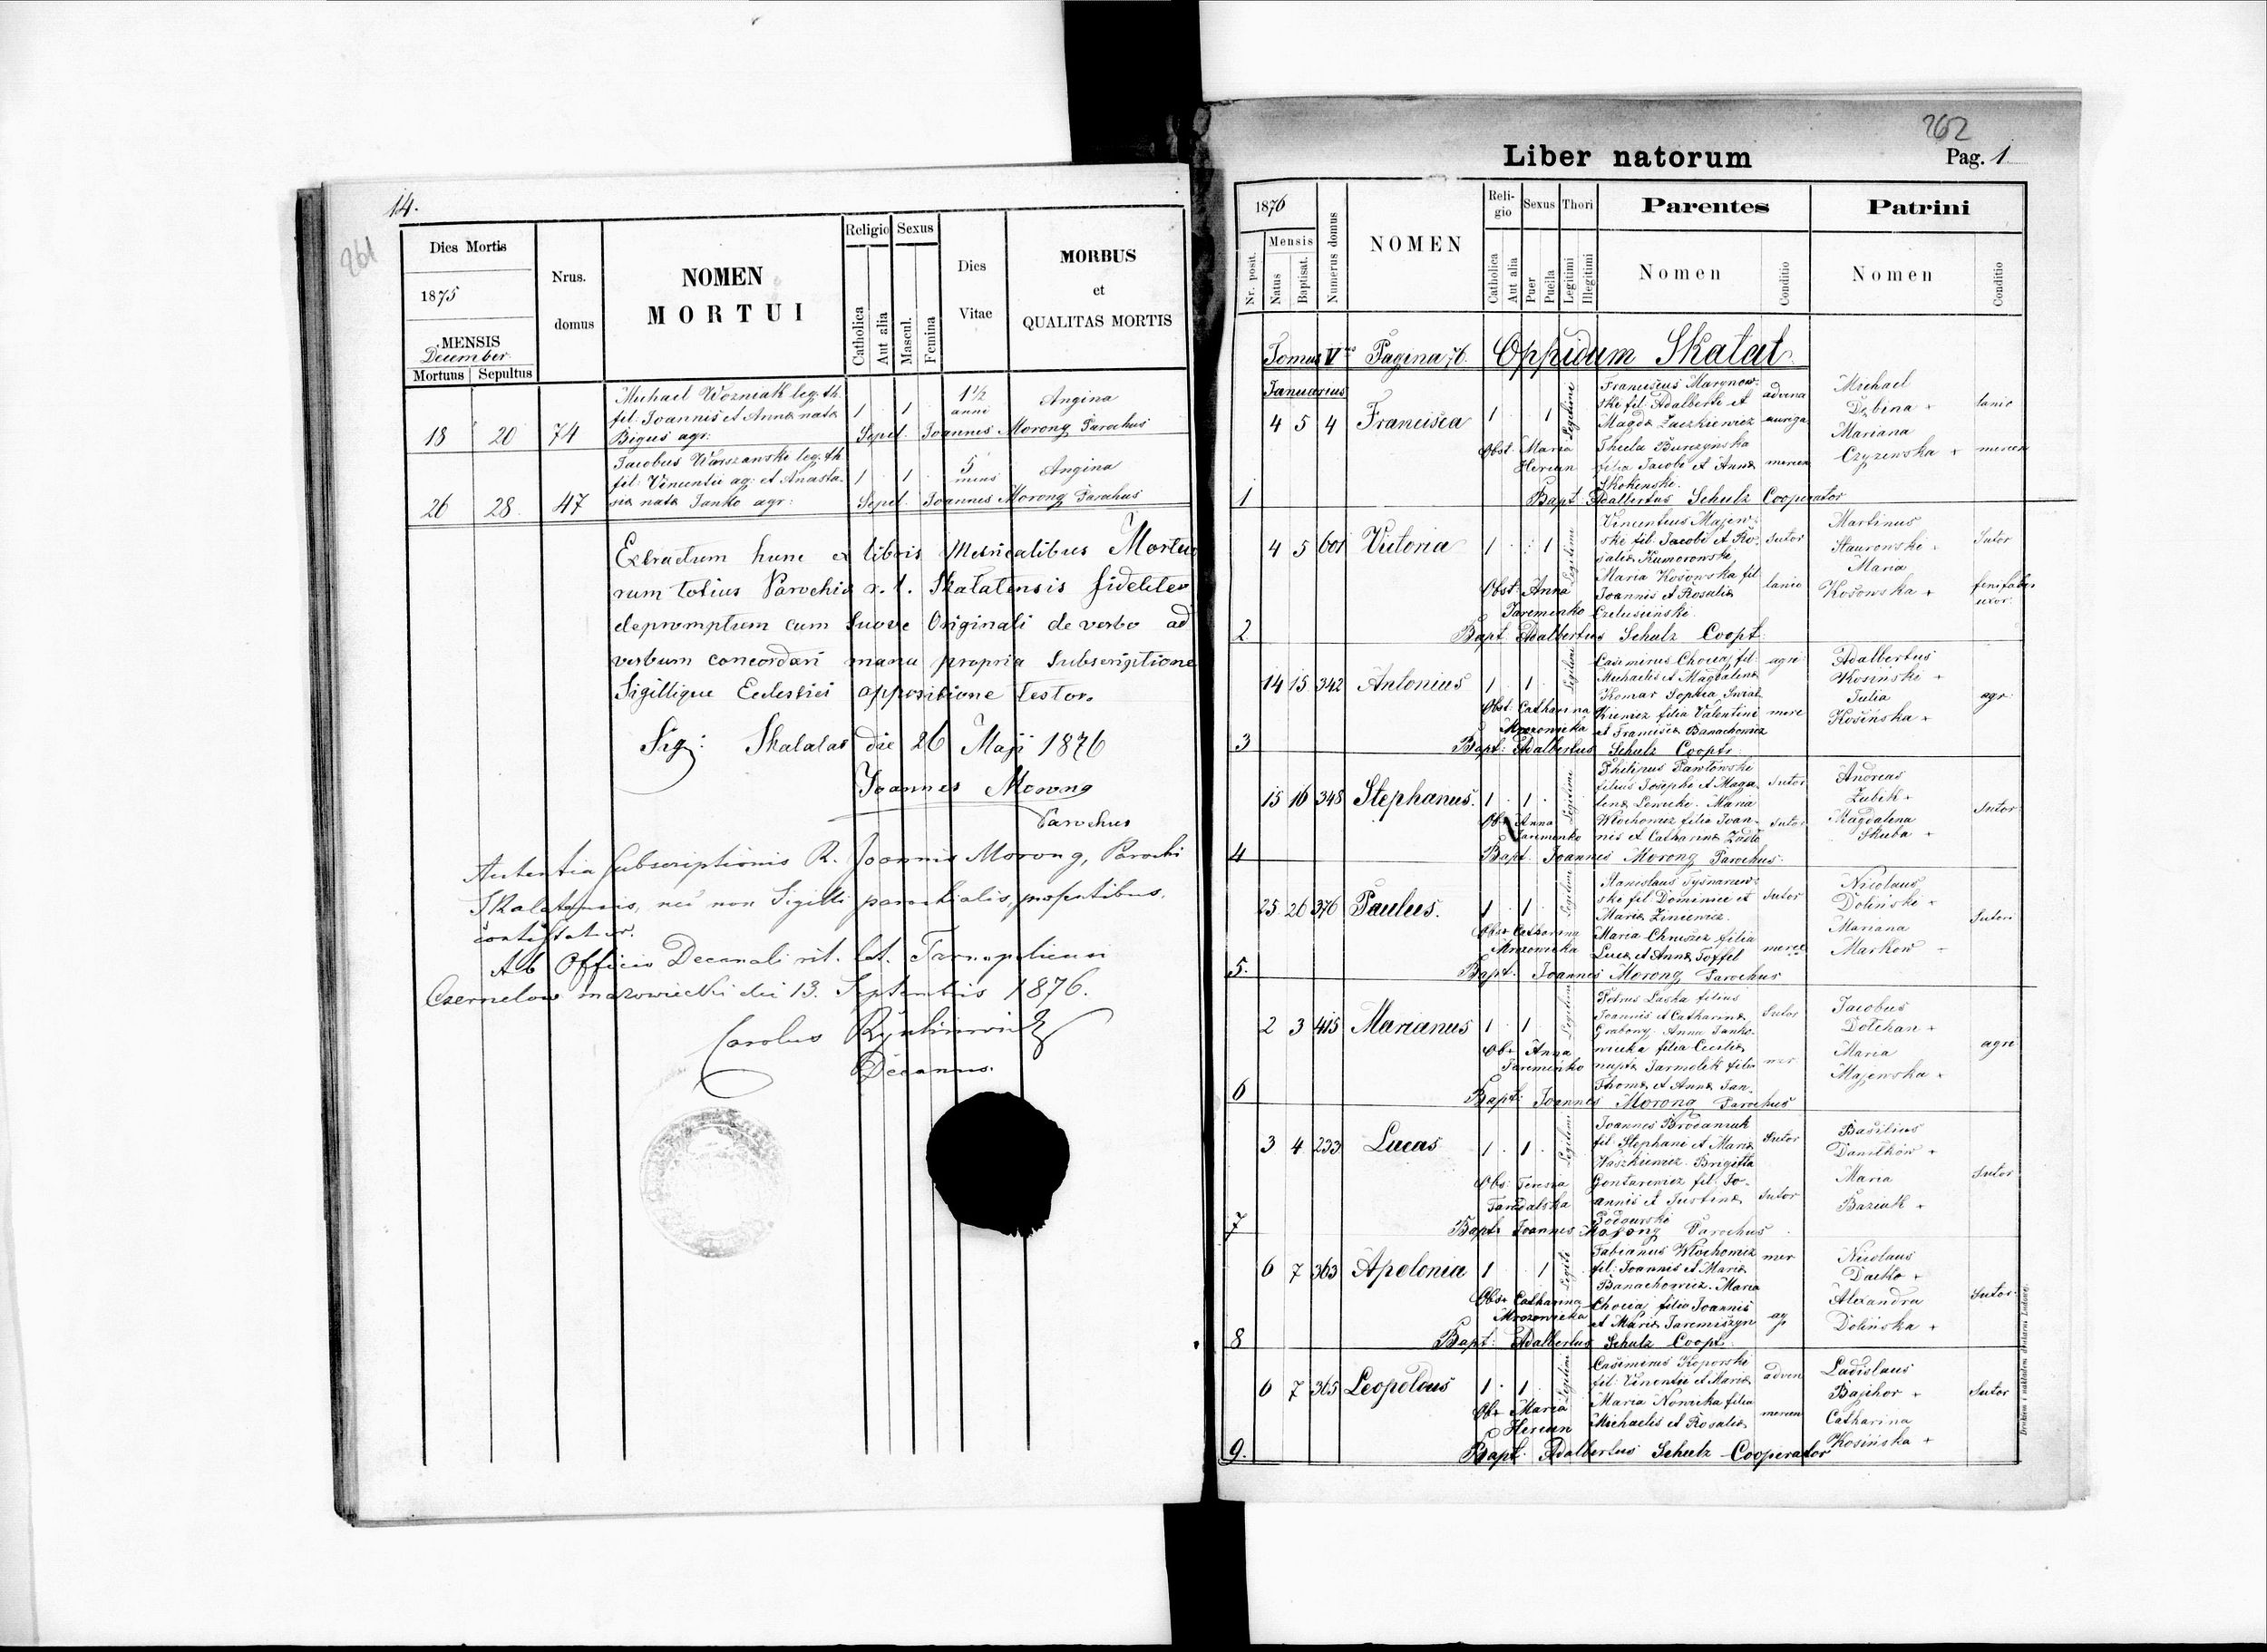 14.
261
Dies Mortis
1875
MENSIS
December
Mortuus Sepultus
Nrus. domus
NOMEN
MORTUI
Religio
Catholica
Aut alia
Sexus
Mascul.
Femina
Dies
Vitae
MORBUS
et
QUALITAS MORTIS
18 20 74
Michael Wozniak leg. th.
fil. Joannis et Annæ natæ
Bigus agr:
1 1 1½ anni Angina
Sepel. Joannes Morong Parochus
26 28. 47
Jacobus Warszanski leg. th.
fil: Vincentii ag: et Anasta-
siæ natæ Janko agr:
1 1 5 mens Angina
Sepel. Joannes Morong Parochus
Extractum hunc ex libris Metricalibus Mortuo
rum totius Parochiæ r. l. Skalatensis fideliter
depromptum cum suore Originali de verbo ad
verbum concordari manu propria Subscriptione
Sigillique Eclesiei appositione testor.
Sig: Skalatas die 26 Maji 1876
Joannes Morong
Parochus
Autentia subscriptionis R. Joannis Morong, Parochi
Skalatensis, nec non Sigilli parochialis, præsentibus,
contestatur.
Ab Officio Decanali rit. lat. Tarnopoliensi
Czernelow mazowiecki die 13. Septembris 1876.
Carolus
Decanus.
262
Liber natorum
Pag. 1
1876
Nr. posit.
Mensis
Natus
Baptisat.
Numerus domus
NOMEN
Reli-
gio
Catholica
Aut alia
Sexus
Puer
Puella
Thori
Legitimi
Illegitimi
Parentes
Nomen
Conditio
Patrini
Nomen
Conditio
Tomus V Pagina 76. Oppidum Skalat
Januarius
1 4 5 4 Francisca 1 1 Legitimi
Franciscus Marynow-
ski fil. Adalberti et
Magdæ Zaczkiewicz
advena
auriga
Thecla Burczynska
filia Jacobi et Annæ
Skokenske.
mercen
Obst. Maria
Hercun
Michael
Dębina +
lanio
Mariana
Czyzewska + mercen
Bapt: Adalbertus Schulz Cooperator
2 4 5 601 Victoria 1 1 Legitimi
Vincentius Majew-
ski fil. Jacobi et Ro-
saliæ Kumorowski
Sutor
Maria Kosowska fil
Joannis et Rosaliæ
lanio
Obst: Anna
Jaremenko
Martinus
Staurowski
Sutor
Maria
Kosowska +
uxor.
Bapt Adalbertus Schulz Coopt.
3 14 15 342 Antonius 1 1 Legitimi
Casimirus Chocaj fil.
Michaelis et Magdalenæ
Komar Sophia Swiat
kiewicz filia Valentini
et Franciscæ Banachowicz
agri
merc
Obst: Catharina
Mrozowicka
Adalbertus
Kosinski +
Julia
Kosinska +
agr.
Bapt: Adalbertus Schulz Coopt.
4 15 16 348 Stephanus. 1 1 Legitimi
Philipus Pawlowski
filius Josephi et Magda
lenæ Lewicki. Maria
Wlochowicz filia Joan-
nis et Catharinæ
Sutor
Sutor
Obs Anna
Jaremenko
Andreas
Zubik +
Magdalena
Skuba +
Sutor
Bapt: Joannes Morong Parochus.
5. 25 26 376 Paulus. 1 1 Legitimi
Stanislaus Tysnariew-
ski fil Dominici et
Mariæ Zincewicz.
Maria Chruszcz filia
Lucæ et Annæ Toffel
Sutor
merce
Obst Catharina
Mrozowicka
Nicolaus
Dolinski +
Mariana
Markow
Sutori
Bapt: Joannes Morong Parochus
6 2 3 415 Marianus 1 1 Legitimi
Petrus Laska filius
Joannis et Catharinæ
Grabony. Anna Janko-
wicka filia Ceciliæ
nuptæ Jarmolek filia
Thomæ et Annæ Jan.
Sutor
mer
Obs Anna
Jaremenko
Jacobus
Dolchan +
Maria
Majewska +
agri
Bapt: Joannes Morong Parochus
7 3 4 233 Lucas 1 1 Legitimi
Joannes Brodaniuk
fil. Stephani et Mariæ
Waszkiewicz. Brigitta
Gontarewicz fil. Jo-
annis et Justinæ
Sutor
Sutor
Obs: Teresia
Basilius
Danilkow +
Maria
Baziuk +
Sutor
Bapt: Joannes Morong Parochus
8 6 7 363 Apolonia 1 1
Fabianus Wlochowicz
fil: Joannis et Mariæ
Banachowicz. Maria
Chocia filia Joannis
et Mariæ Jaremiszyn
mer
ag
Obs: Catharina
Mrozowicka
Nicolaus
Dacko +
Alexandra
Dolinska +
Sutor.
Bapt: Adalbertus Schulz Coopt.
9. 6 7 365 Leopoldus 1 1 Legitimi
Casimirus Koporski
fil: Vincentii et Mariæ
Maria Nowicka filia
Michaelis et Rosaliæ
adven
mercen
Obs Maria
Hercun
Ladislaus
Bajthor +
Catharina
Kosińska +
Sutor
Bapt: Adalbertus Schulz Cooperator